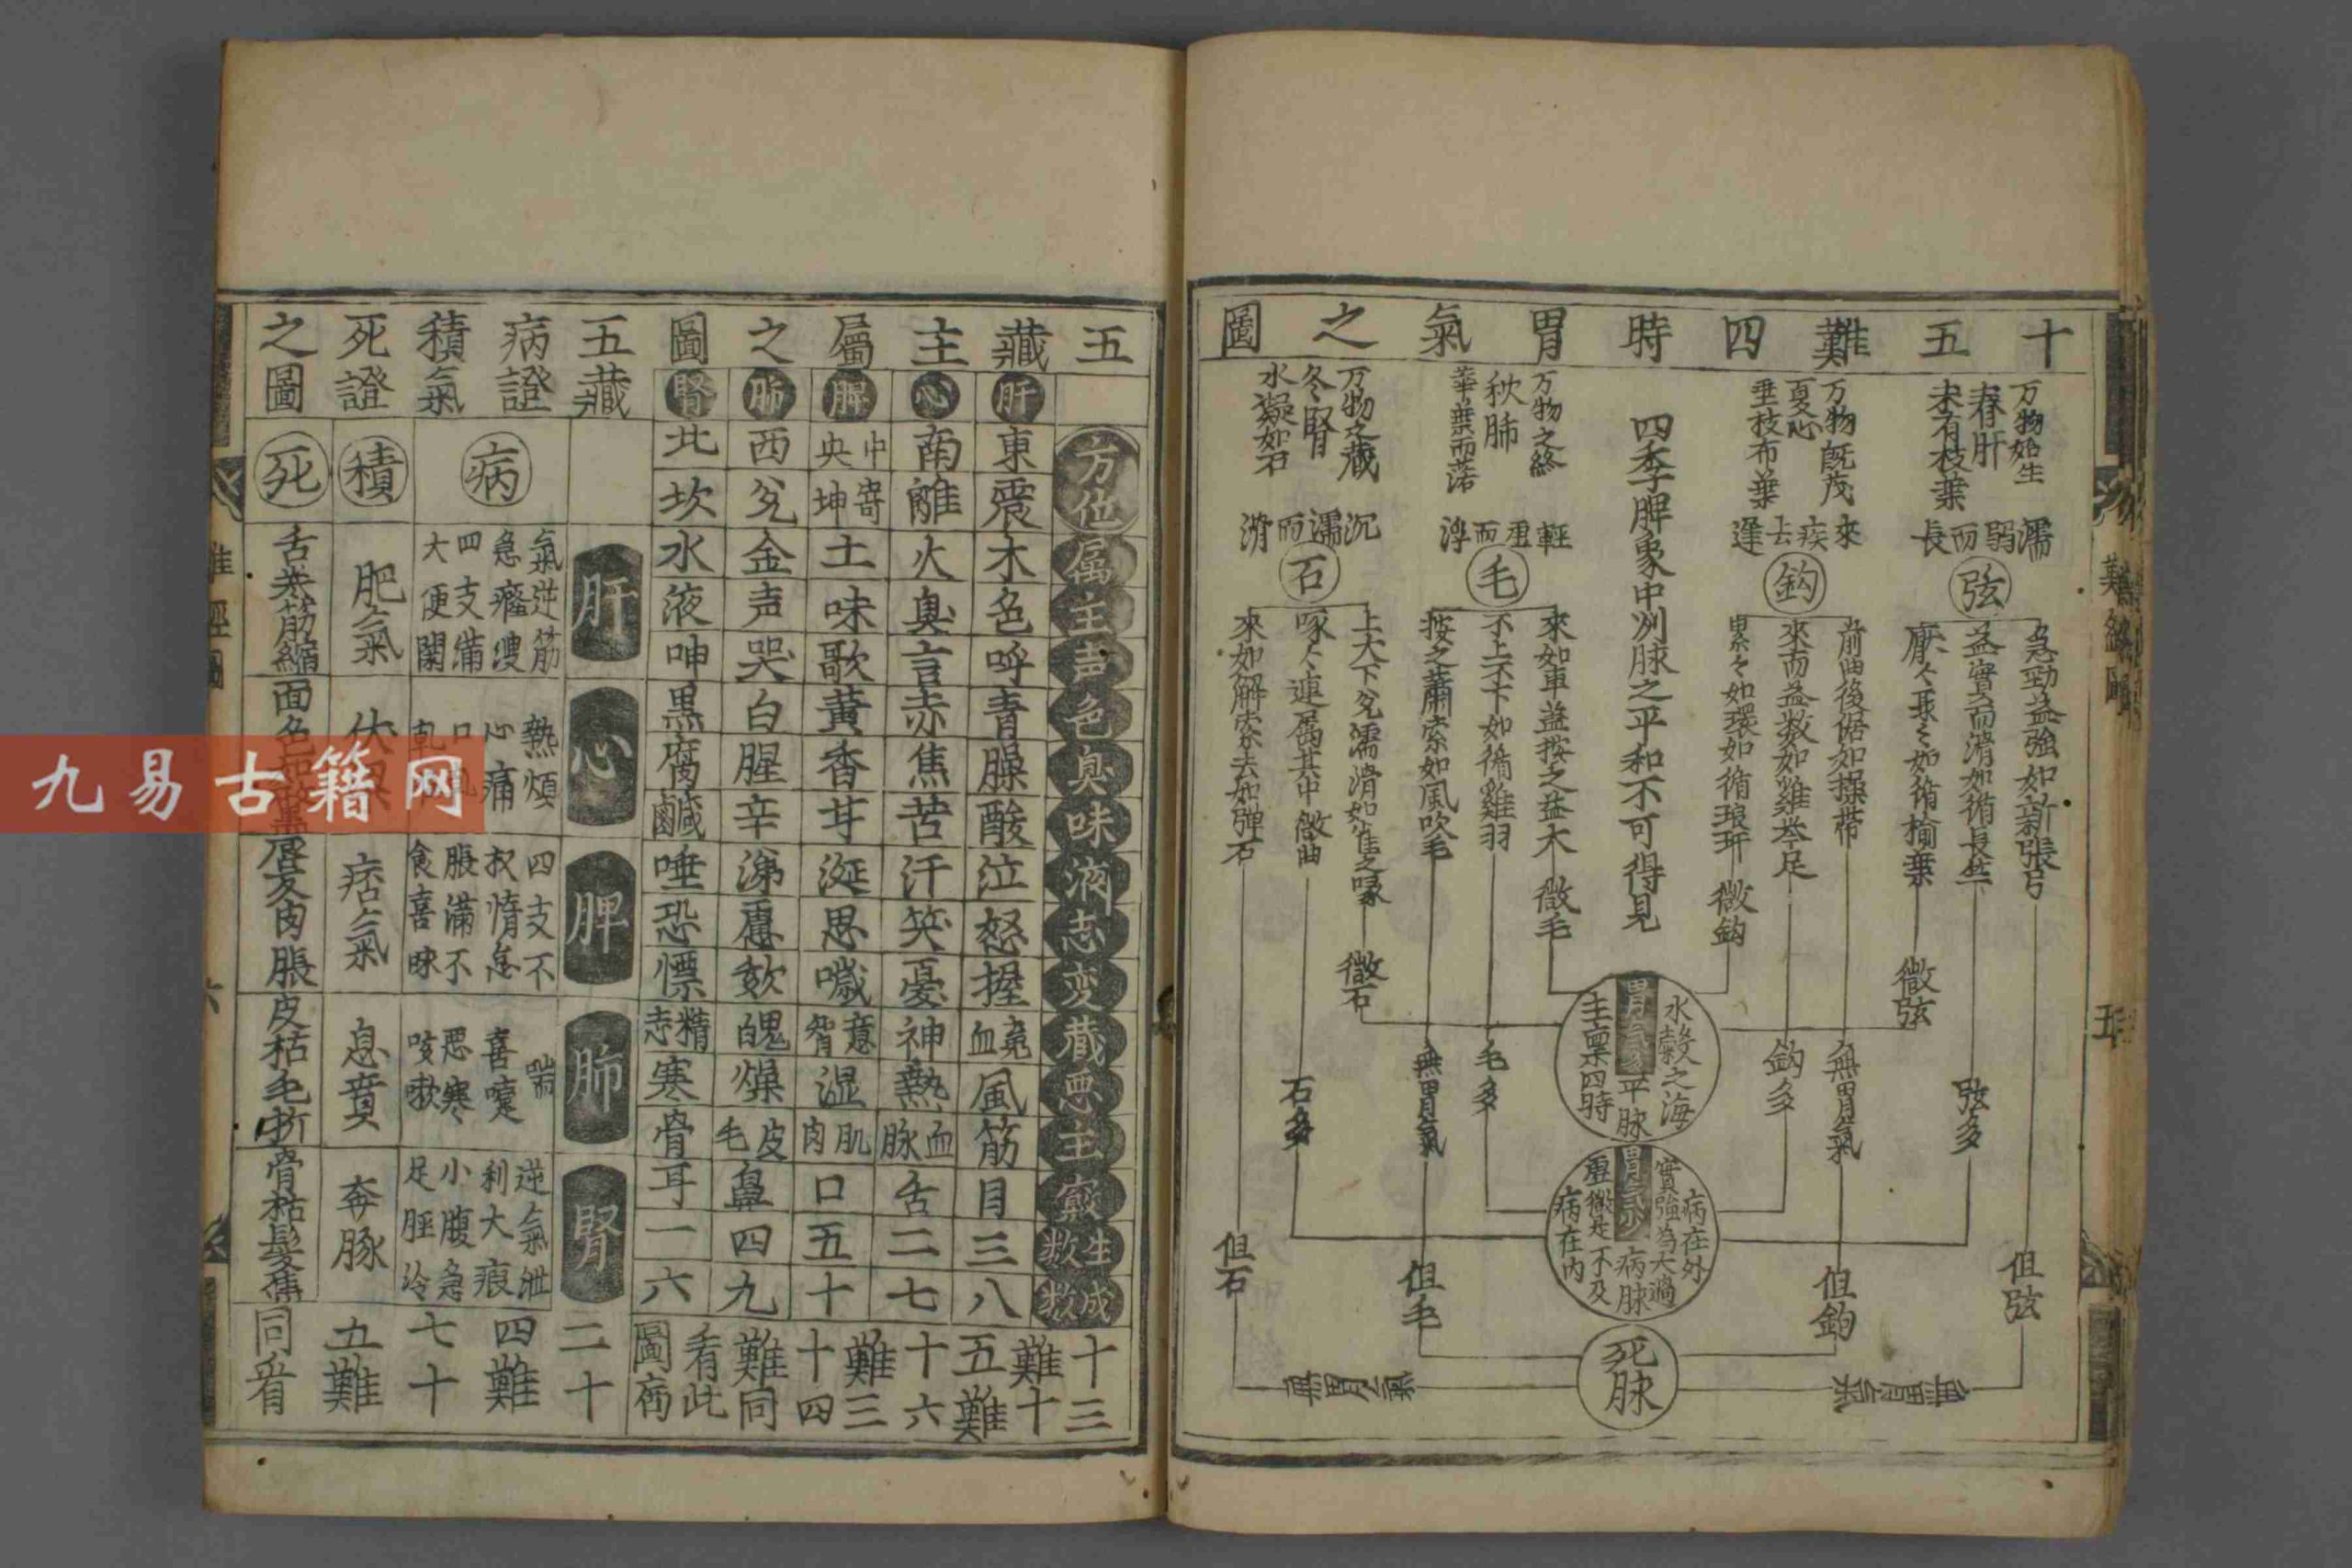 十五難四時胃氣之圖
万物始生
春肝
未有枝葉
濡弱而長
弦
急勁益強如新張弓
益實而滑如循長竿
厭々聂々如循榆葉
微弦
弦多
但弦
無胃氣
万物既茂
夏心
垂枝布葉
來疾去遲
鈎
前曲後倨如操帶
來而益数如雞举足
累々如環如循琅玕
微鈎
鈎多
無胃氣
但鈎
四季脾象中州脉之平和不可得見
万物之終
秋肺
華葉而落
輕虛而浮
毛
來如車盖按之益大
不上不下如循雞羽
按之蕭索如風吹毛
微毛
毛多
無胃氣
但毛
万物之藏
冬腎
水凝如石
沉濡而滑
石
上大下兊濡滑如雀之喙
啄々連属其中微曲
來如解索去如弹石
微石
石多
但石
無胃氣
水穀之海
胃氣平脉
主禀四時
病在外
實強為太過
胃氣少病脉
虛微是不及
病在內
死脉
難經圖
五
五藏主屬之圖
肝 心 脾 肺 腎
方位 東震 南離 中央寄坤 西兊 北坎
属 木 火 土 金 水
主 色 臭 味 声 液
声 呼 言 歌 哭 呻
色 青 赤 黃 白 黒
臭 臊 焦 香 腥 腐
味 酸 苦 甘 辛 鹹
液 泣 汗 涎 涕 唾
志 怒 笑 思 慮 恐
变 握 憂 噦 欬 慄
藏 魂血 神 意智 魄 精志
悪 風 熱 湿 燥 寒
主 筋 血脉 肌肉 皮毛 骨
竅 目 舌 口 鼻 耳
生数 三 二 五 四 一
成数 八 七 十 九 六
十三難十五難十六難三十四難同看此圖
五藏病證積氣死證之圖
病 積 死
肝 氣逆筋急瘤溲四支滿大便閉 肥氣 舌卷筋縮
心 熱煩心痛口 伏 面色
脾 四支不収惰怠脹滿不食喜味 痞氣 唇反肉脹
肺 喘喜嚏悪寒咳嗽 息賁 皮枯毛折
腎 逆氣泄利大痕小腹急足脛冷 奔豚 骨枯髮焦
二十四難七十五難同看
九易古籍网